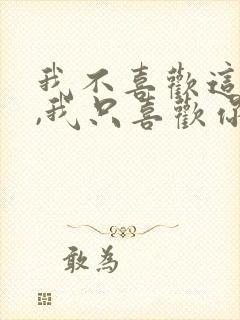 我不喜歡這
,我只喜歡你
敢為